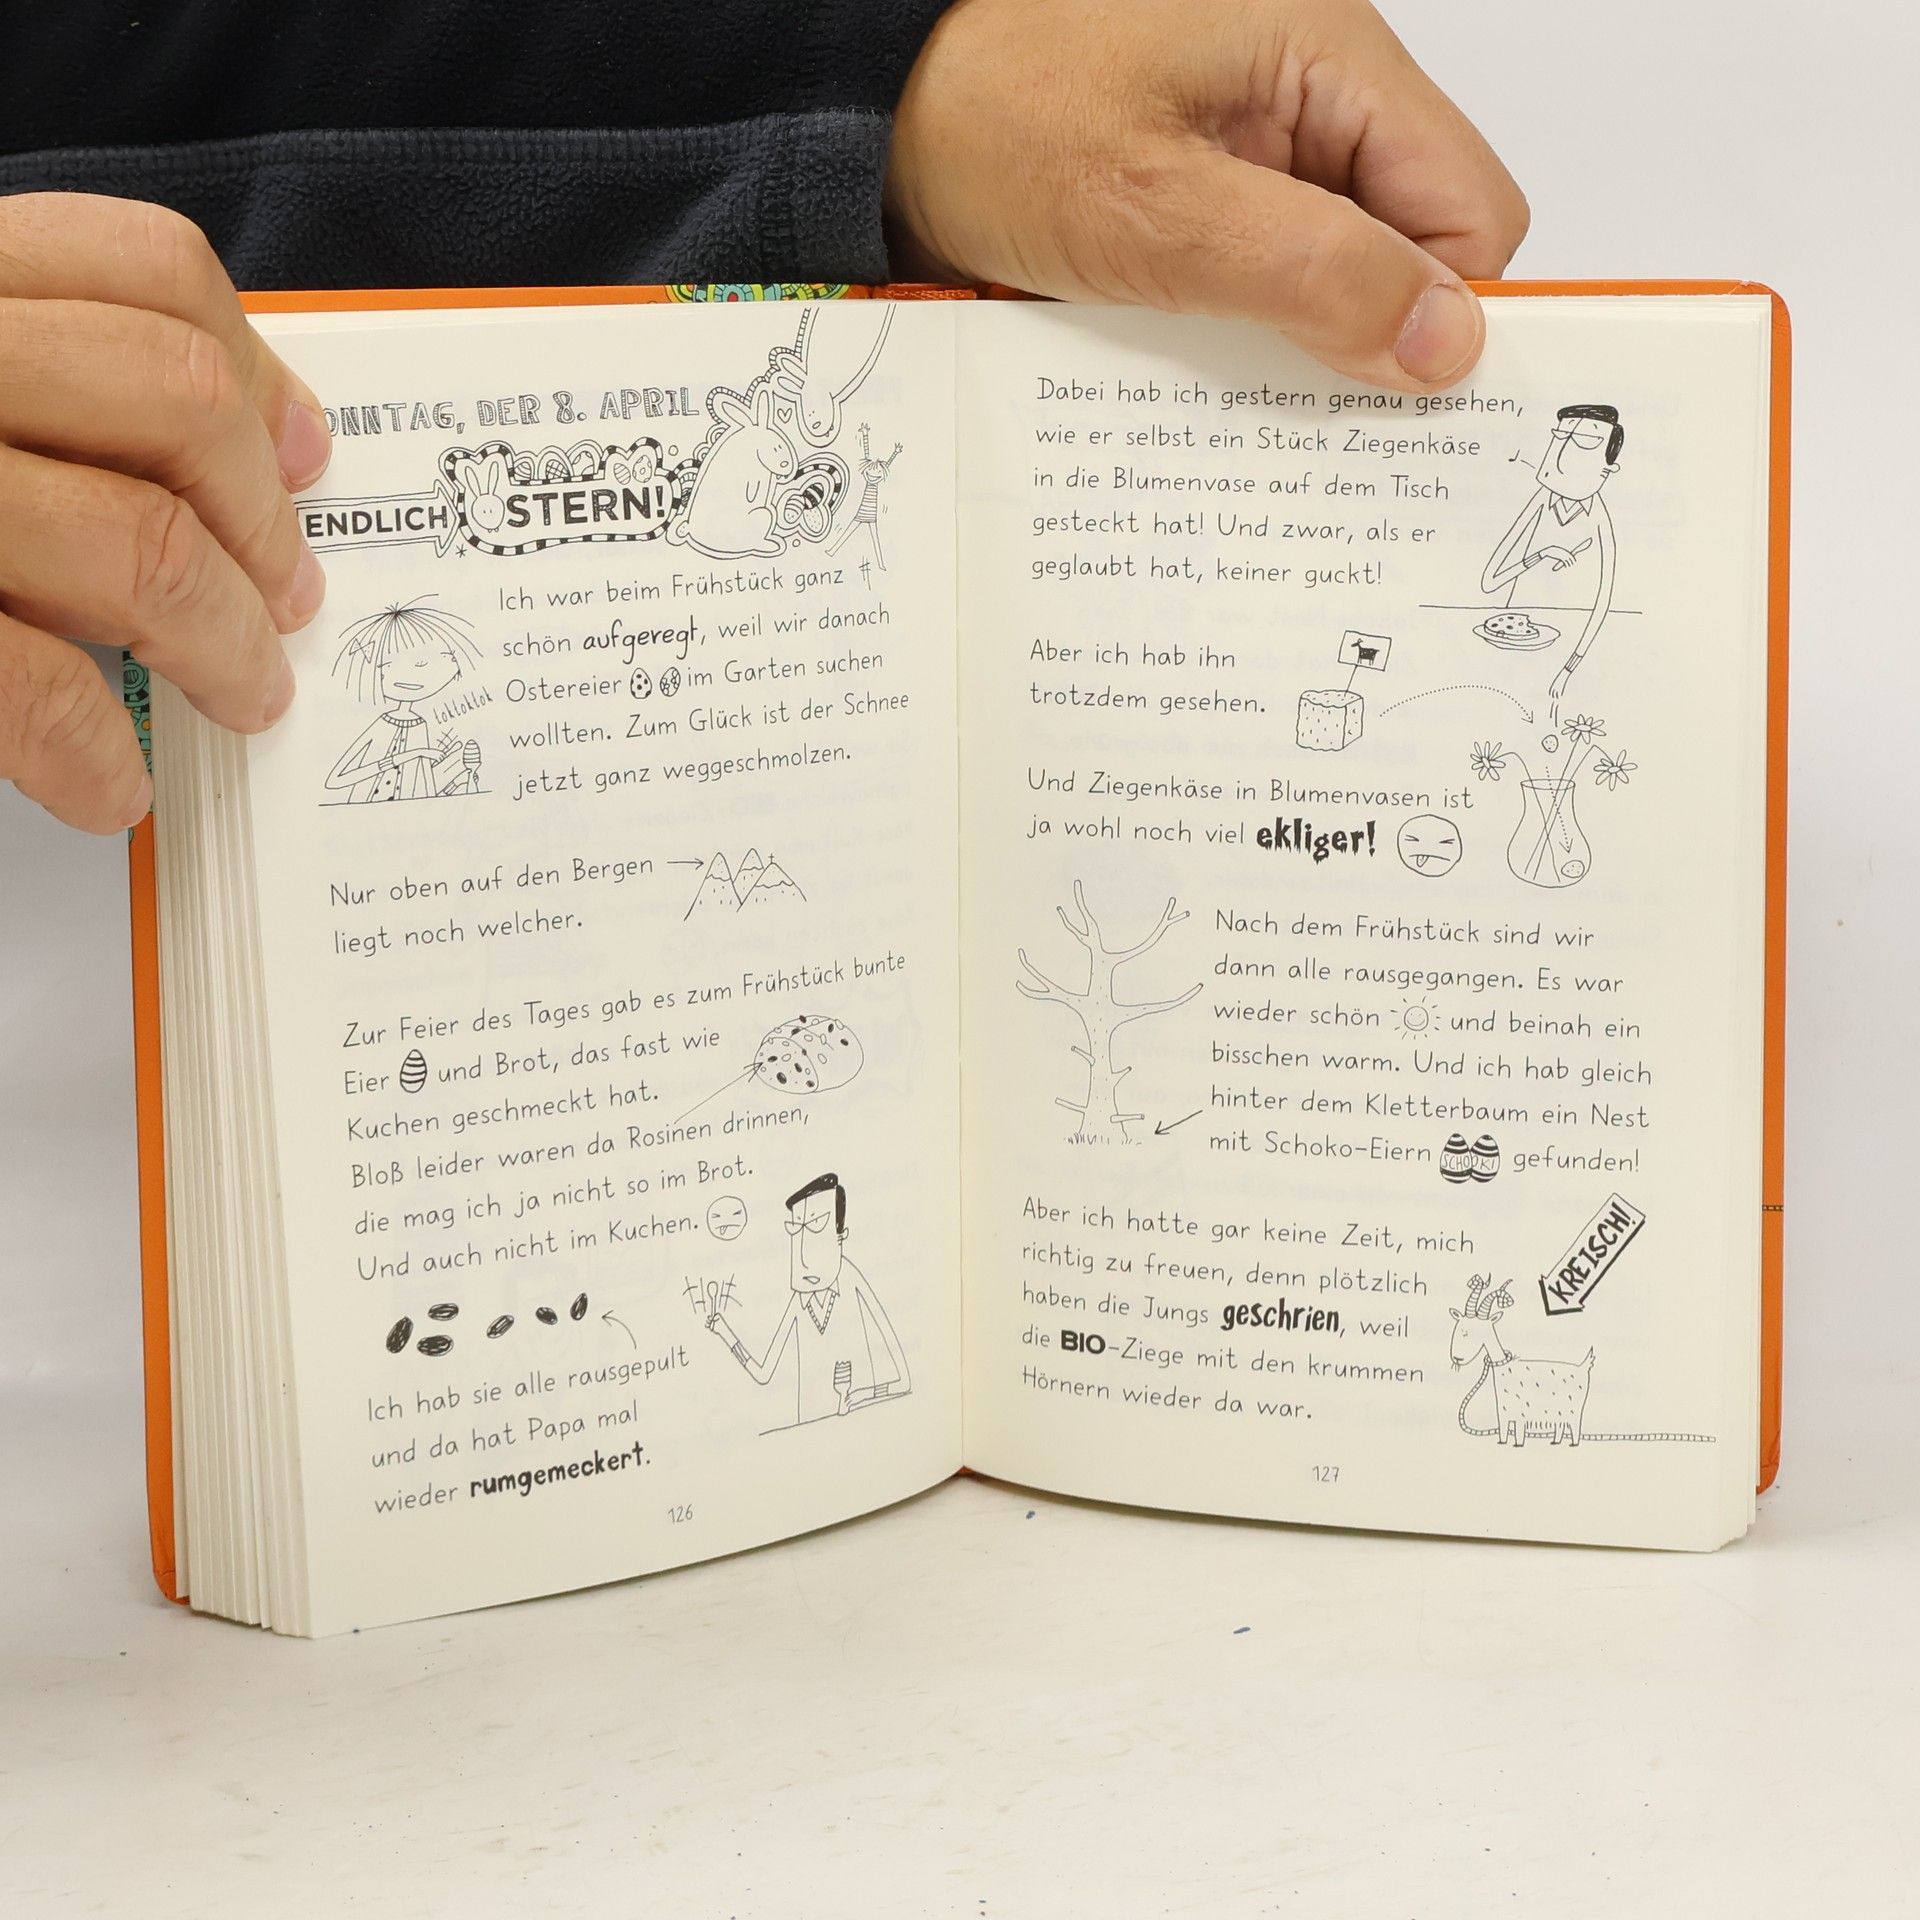 ONNTAG, DER 8. APRIL
ENDLICH OSTERN!
Ich war beim Frühstück ganz
schön aufgeregt, weil wir danach
Ostereier im Garten suchen
wollten. Zum Glück ist der Schnee
jetzt ganz weggeschmolzen.
toktoktok
Nur oben auf den Bergen
liegt noch welcher.
Zur Feier des Tages gab es zum Frühstück bunte
Eier und Brot, das fast wie
Kuchen geschmeckt hat.
Bloß leider waren da Rosinen drinnen,
die mag ich ja nicht so im Brot.
Und auch nicht im Kuchen.
Ich hab sie alle rausgepult
und da hat Papa mal
wieder rumgemeckert.
126
Dabei hab ich gestern genau gesehen,
wie er selbst ein Stück Ziegenkäse
in die Blumenvase auf dem Tisch
gesteckt hat! Und zwar, als er
geglaubt hat, keiner guckt!
Aber ich hab ihn
trotzdem gesehen.
Und Ziegenkäse in Blumenvasen ist
ja wohl noch viel ekliger!
Nach dem Frühstück sind wir
dann alle rausgegangen. Es war
wieder schön und beinah ein
bisschen warm. Und ich hab gleich
hinter dem Kletterbaum ein Nest
mit Schoko-Eiern SCHOOKI gefunden!
Aber ich hatte gar keine Zeit, mich
richtig zu freuen, denn plötzlich
haben die Jungs geschrien, weil
die BIO-Ziege mit den krummen
Hörnern wieder da war.
KREISCH!
127